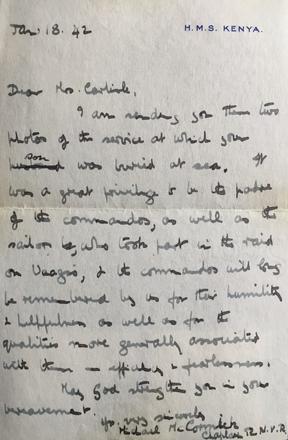 Jan. 18. 42
H.M.S. KENYA.
Dear Mrs. Carlisle,
I am sending you these two
photos of the service at which your
son
husband was buried at sea. It
was a great privilege to be the padre
of the commandos, as well as the
sailors, who took part in the raid
on Vaagso, & the commandos will long
be remembered by us for their humility
& helpfulness as well as for the
qualities more generally associated
with them - efficiency & fearlessness.
May God strengthen you in your
bereavement.
Yrs very sincerely
Michael McCormick
Chaplain R.N.V.R.